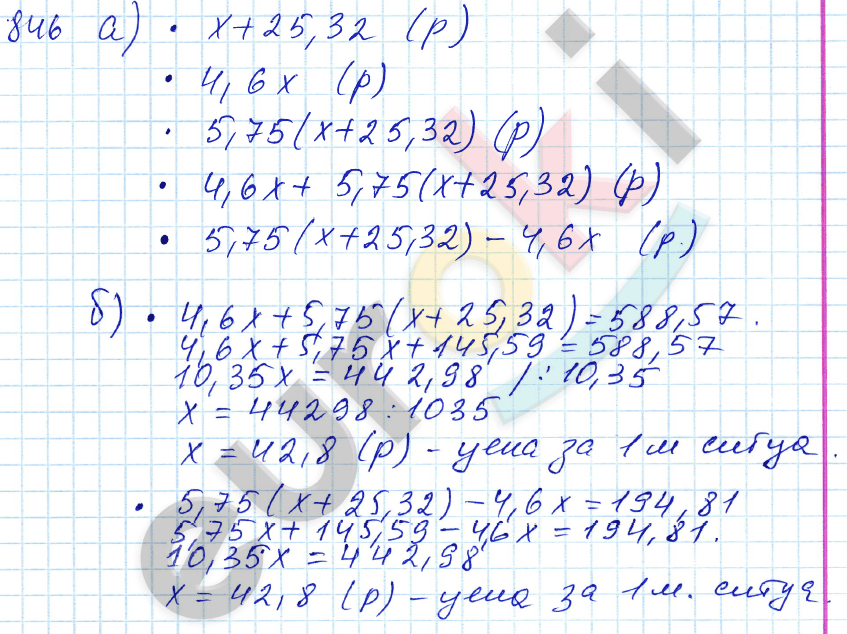 846 а) • x+25,32 (р)
• 4,6x (р)
• 5,75(x+25,32) (р)
• 4,6x+ 5,75(x+25,32) (р)
• 5,75(x+25,32)-4,6x (р)
б) • 4,6x+5,75(x+25,32)=588,57.
4,6x+5,75x+145,59=588,57
10,35x=442,98 /:10,35
x=44298:1035
x=42,8 (р)- цена за 1м ситца.
• 5,75(x+25,32)-4,6x=194,81
5,75x+145,59-4,6x=194,81.
10,35x=442,98
x=42,8 (р)-цена за 1м. ситца.
euroki